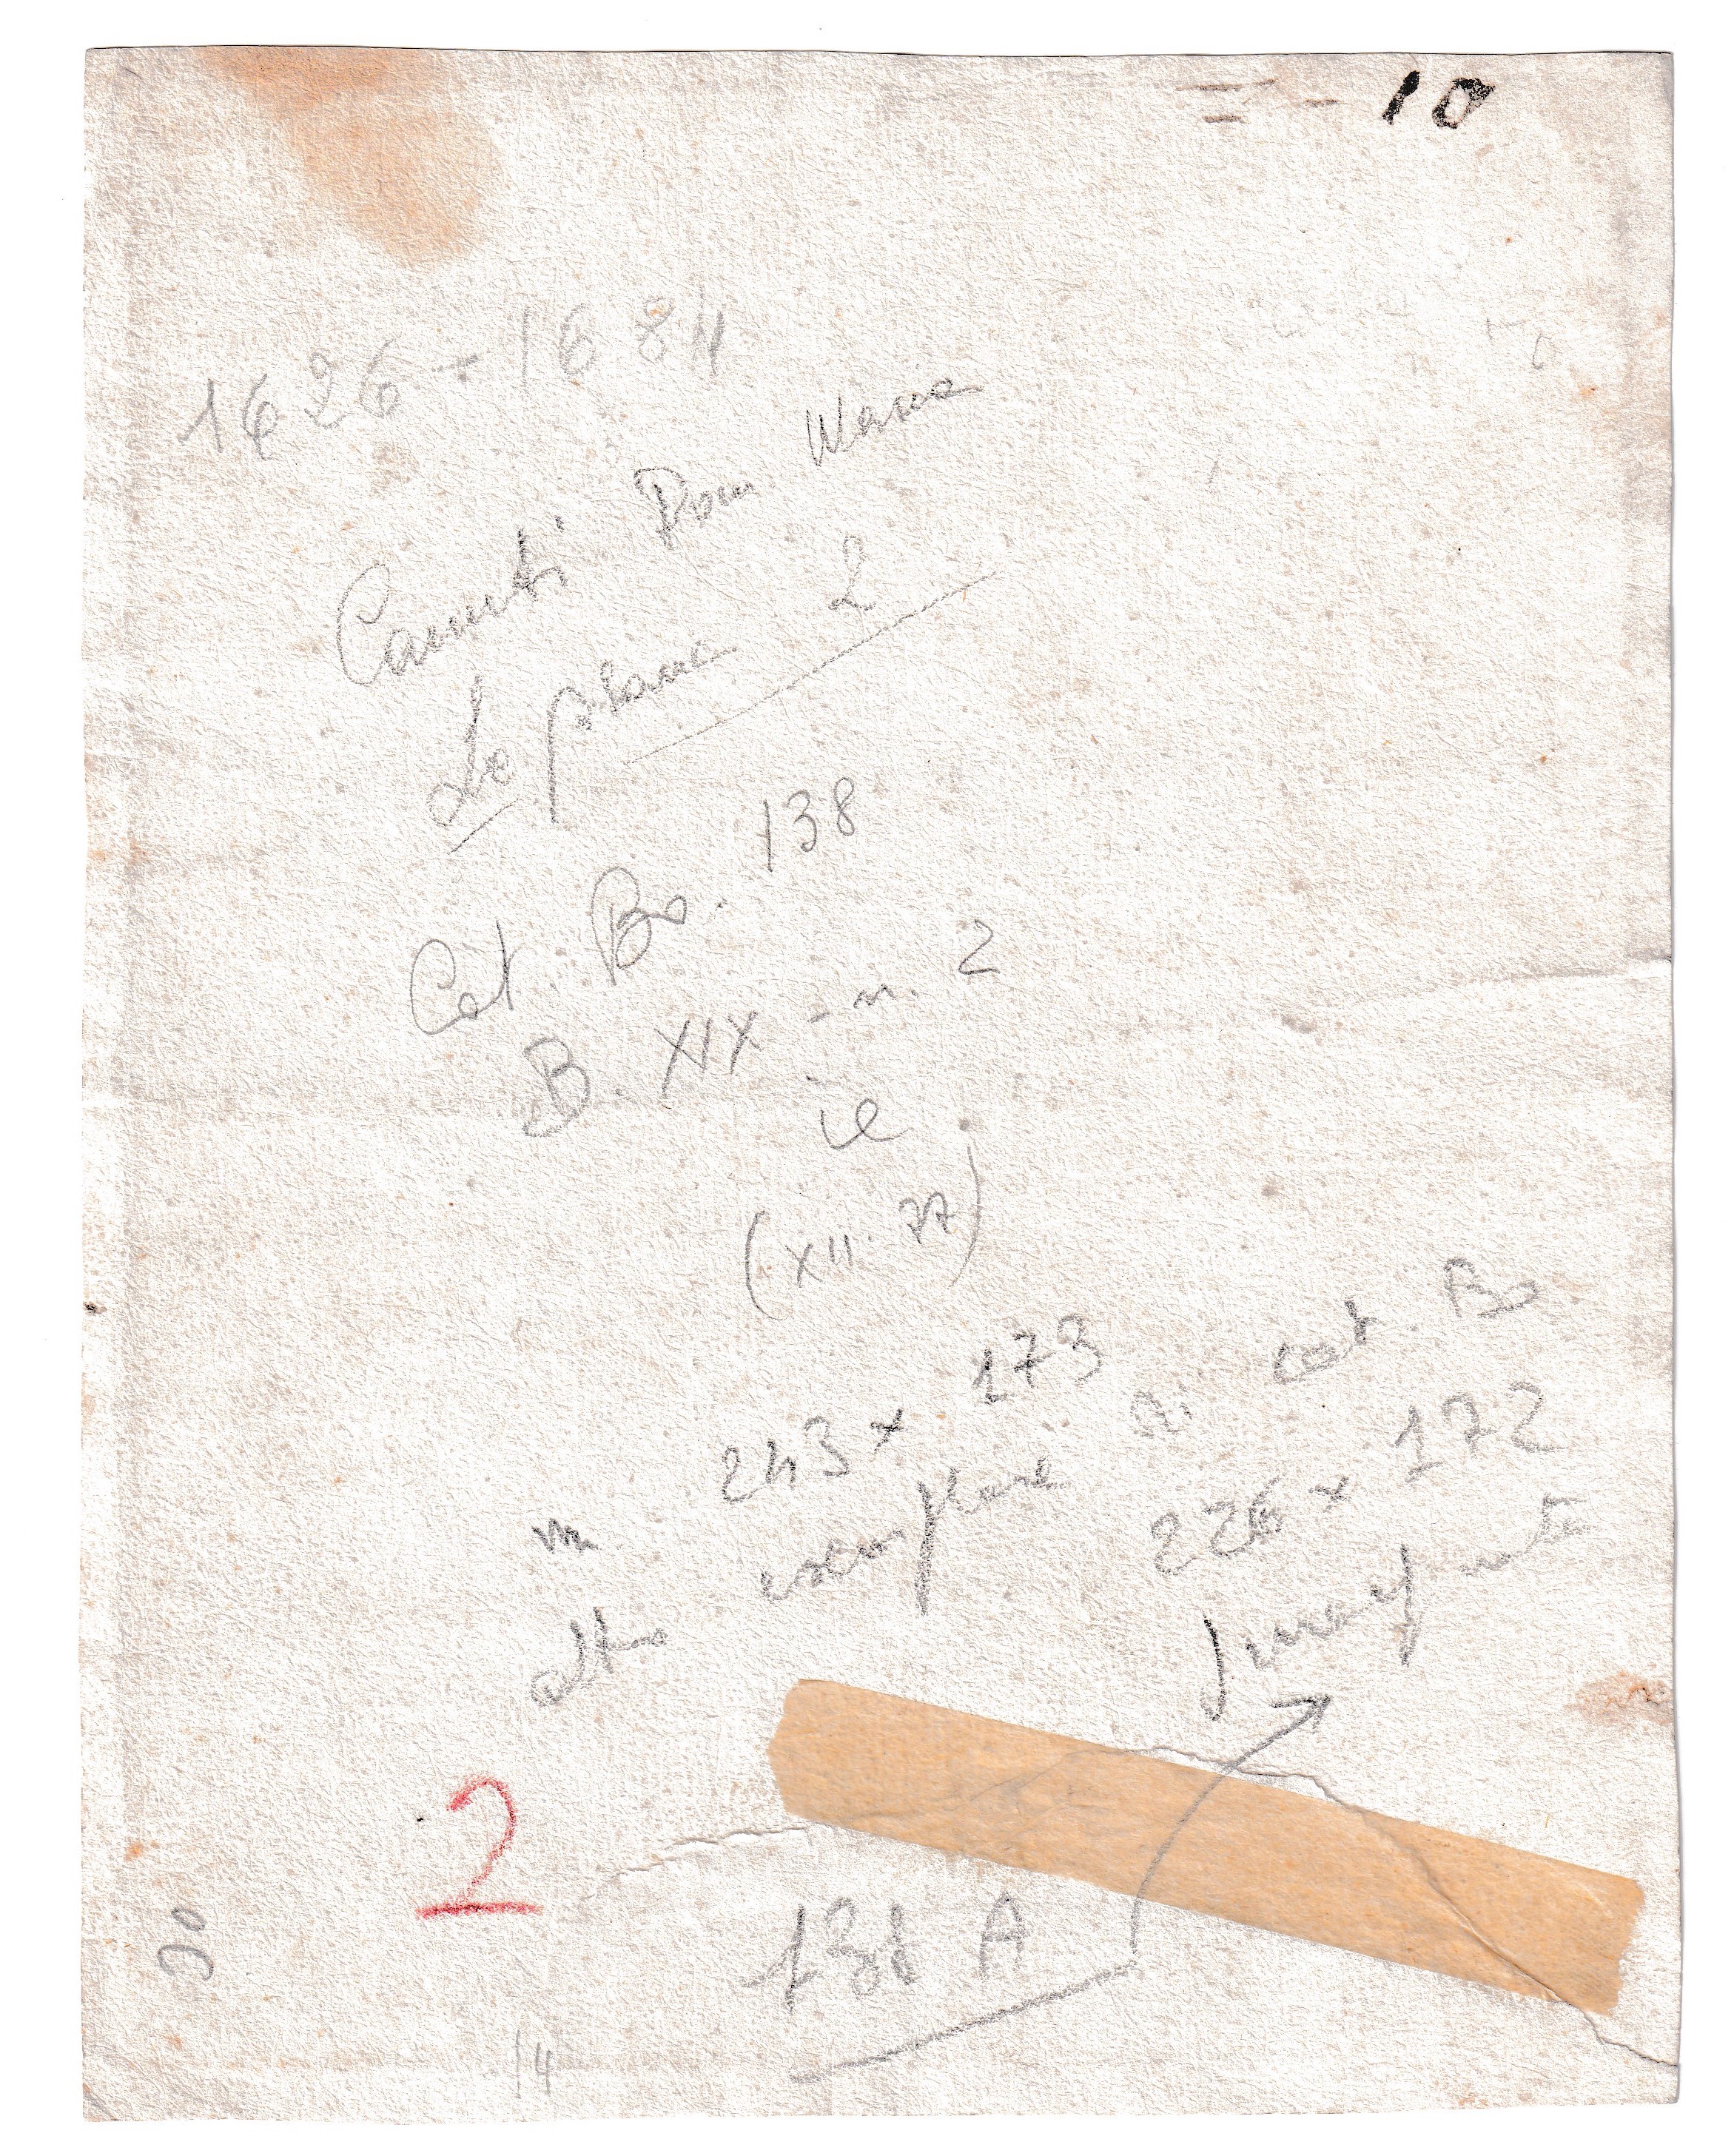 10
1626 - 1684
Canuti Dom Maria
2
Cat. Bo. 138
B. XIX - n. 2
(XII. 77)
243 x 173
altro esemplare di cat. Bo
226 x 172
2
138 A
90
14